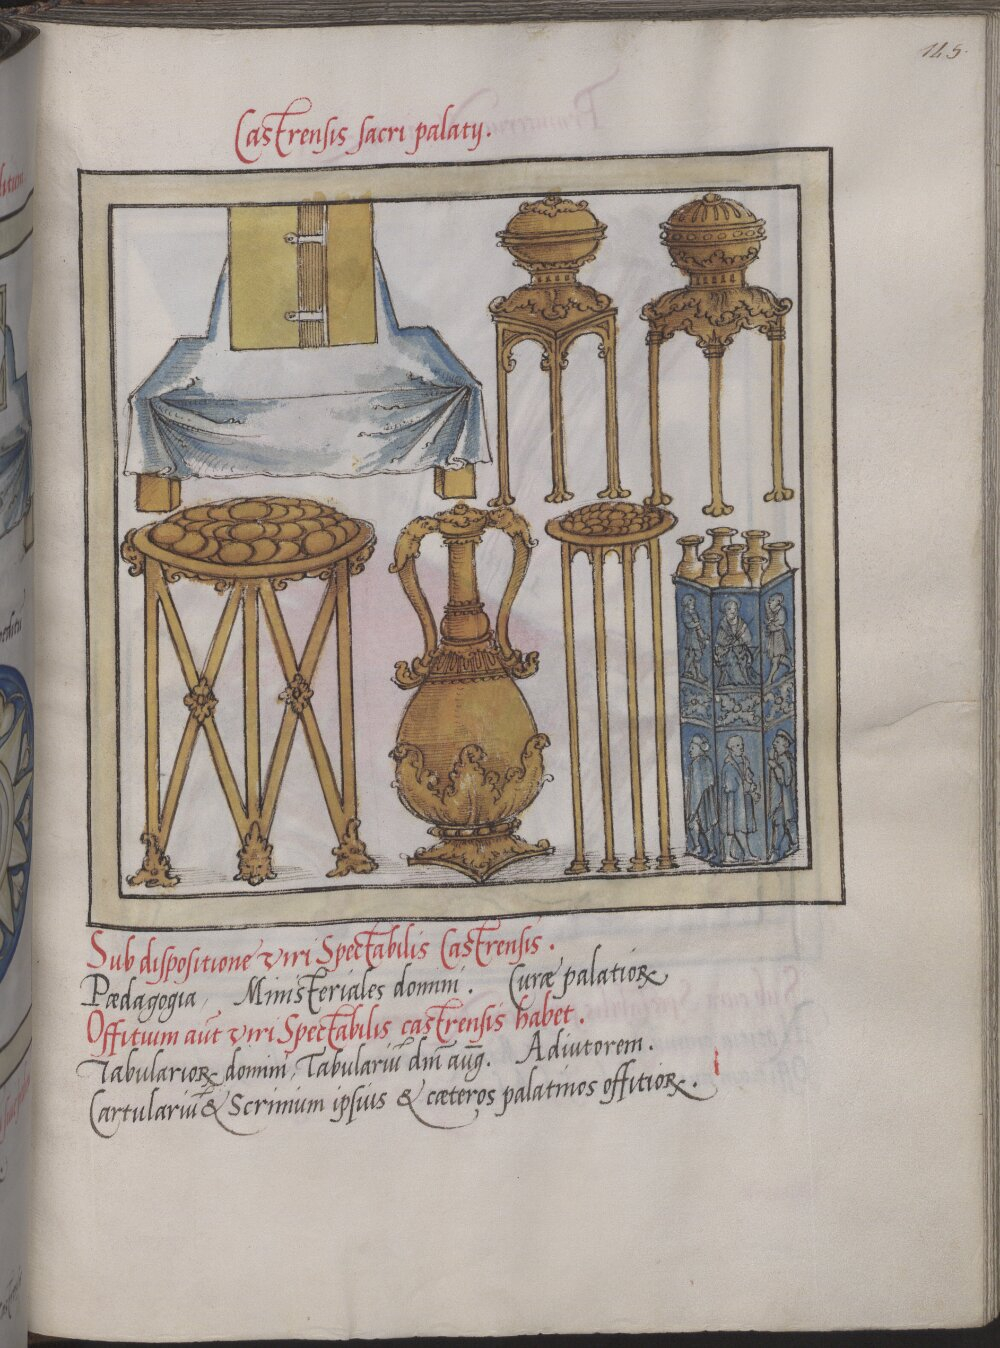 145.
Castrensis sacri palatij.
Sub dispositione viri Spectabilis Castrensis.
Pædagogia, Ministeriales domini. Curæ palatioꝝ
Offitium aut̄ viri Spectabilis castrensis habet.
Tabularioꝝ domini, Tabulariū dn̄i auḡ. Adiutorem.
Cartulariū & Scrinium ipsius & cæteros palatinos offitioꝝ.